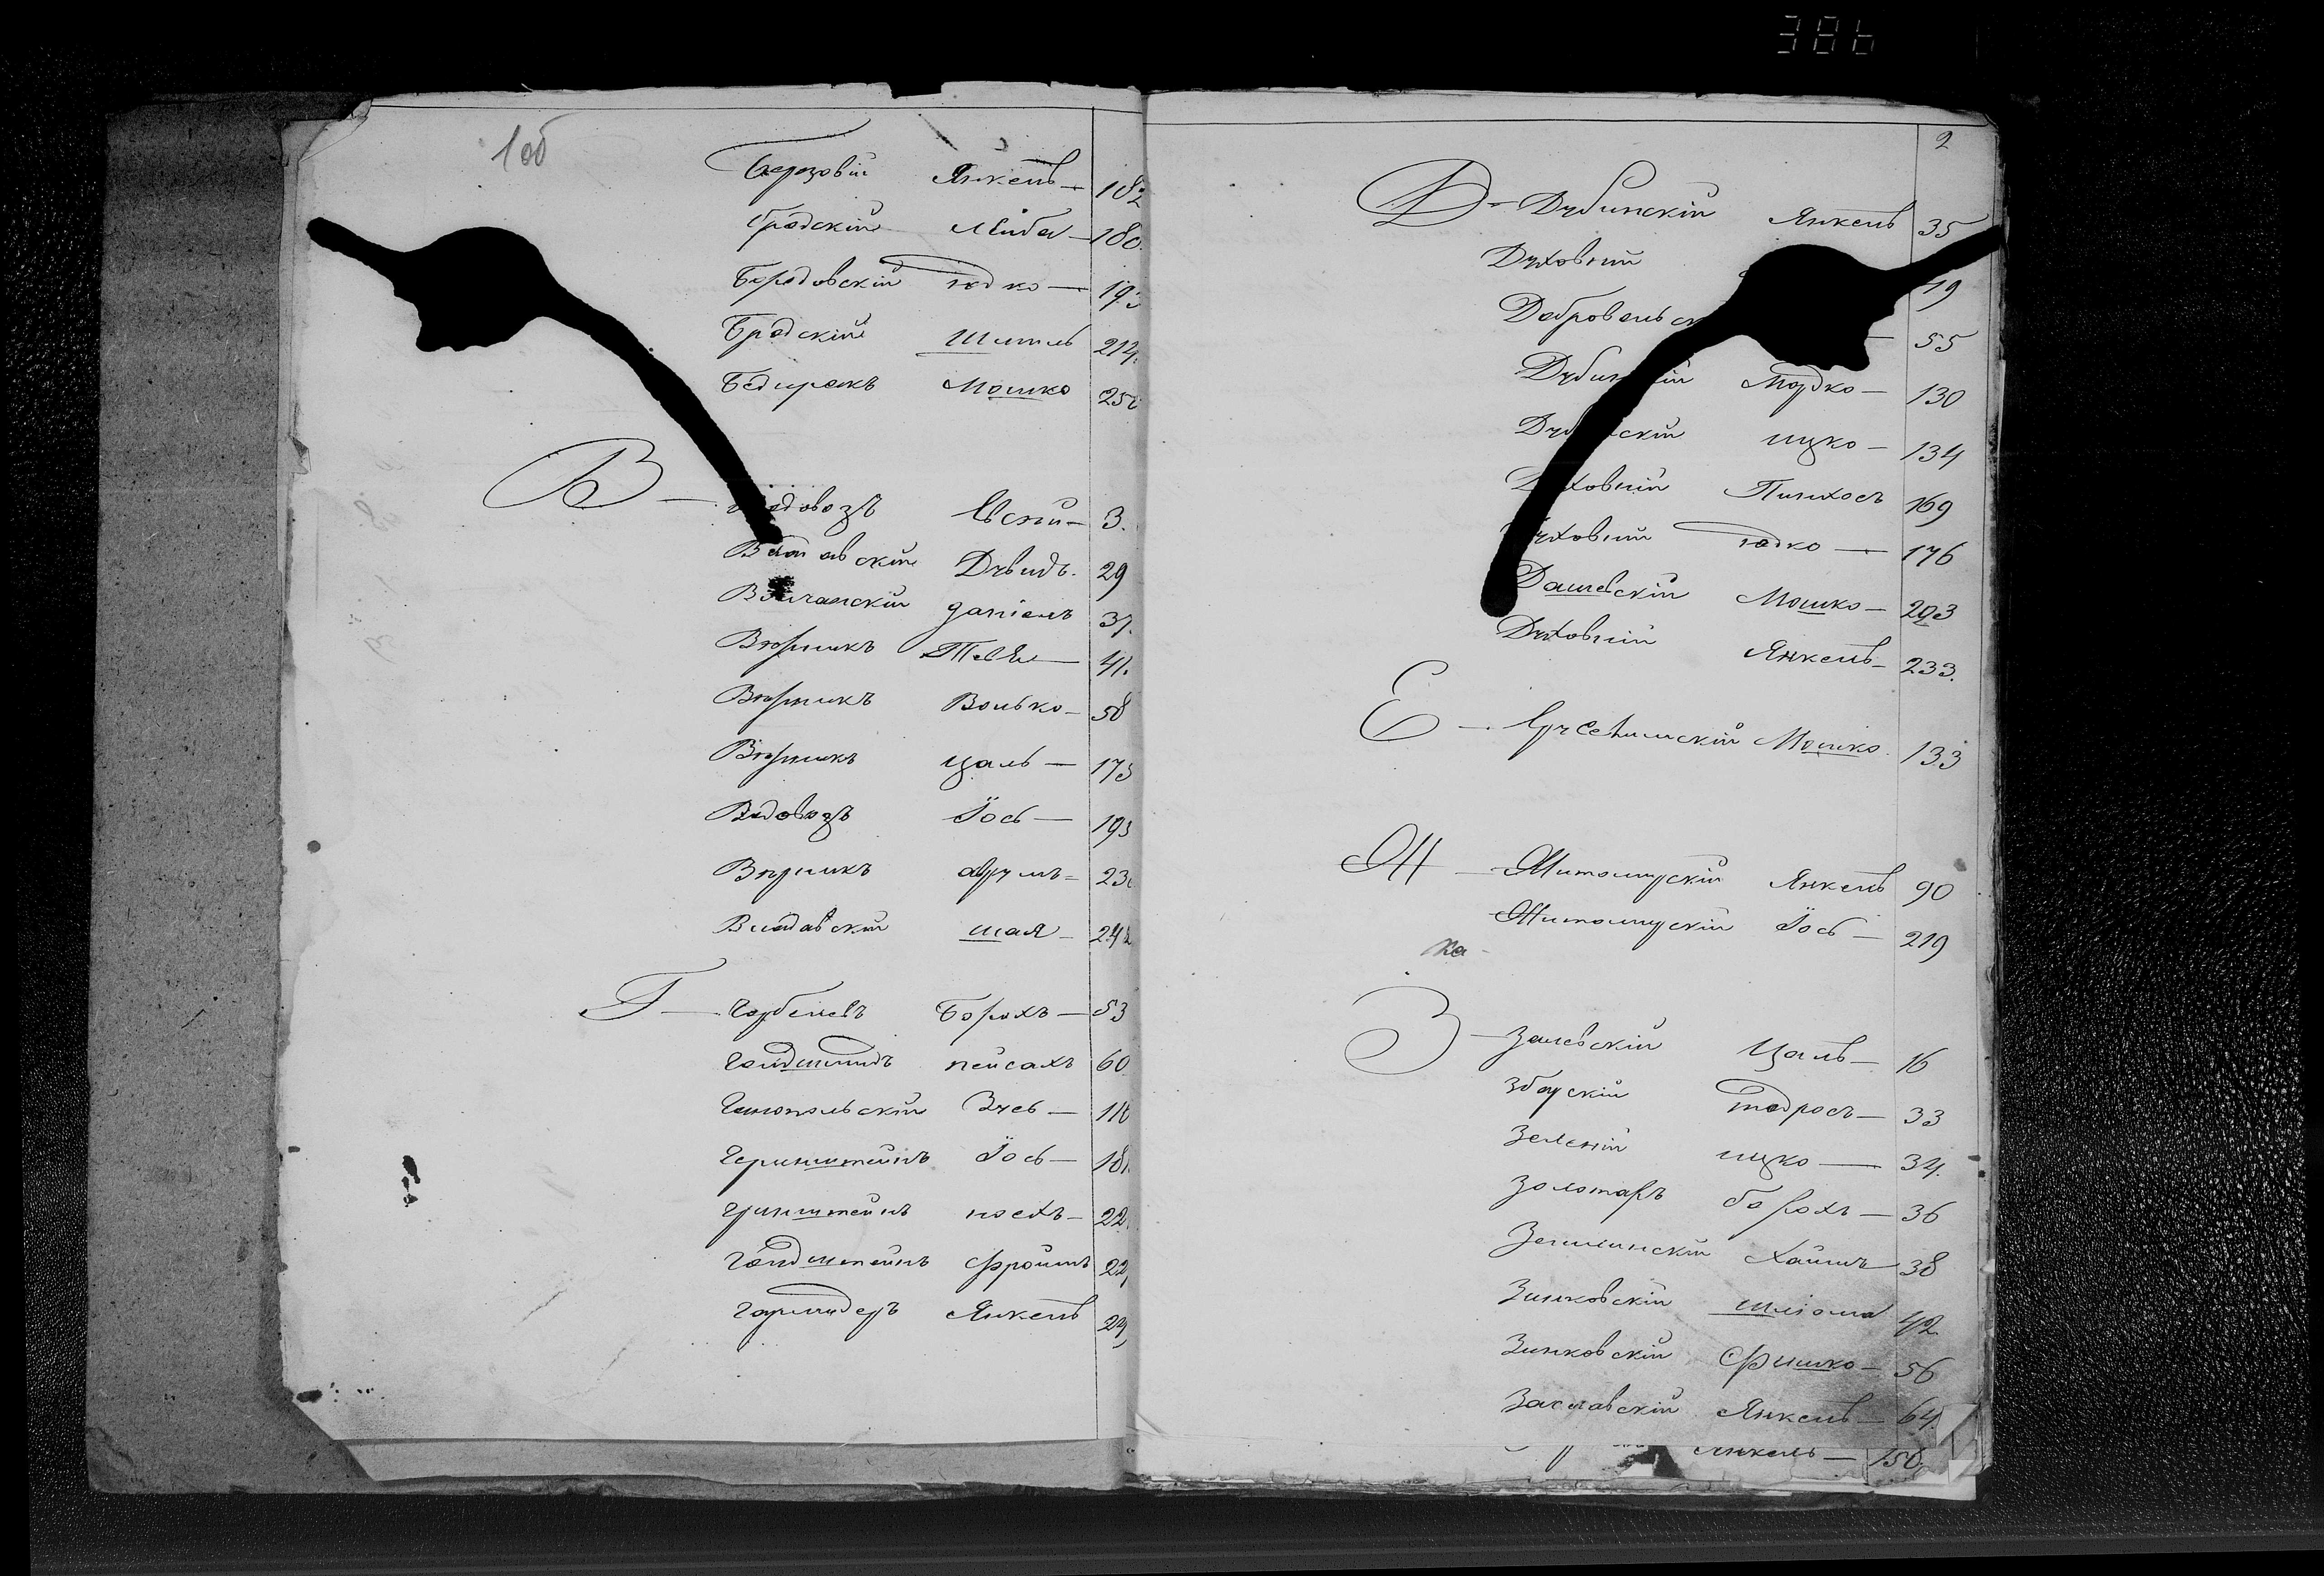 386
1об
Березовій Янкель — 182
Бродскій Лейба — 180.
Бородовскій Юдко — 193
Бродскій Шмиль 214.
Мошко 25
В — Водовозъ Евсей — 3.
Витавскій Дувидъ. 29
Волчанскій Даніель 37.
Вюрникъ Тевель — 41.
Вюрникъ Волько — 58
Вюрникъ Цаль — 175
Водовозъ Іось — 193
Вюрникъ Аврумъ — 23
Видавскій Шая — 242
Г — Борохъ — 53
Голдшмидъ Пейсахъ 60
Гинопольскій Зусь — 11
Геринштейнъ Іось — 181
Гринштейнъ Носехъ — 22
Голдштейнъ Фроимъ 22
Гармидеръ Янкель 24
2
Д — Дубинскій Янкель 35
Духовний 49
Добровольск — 55
Дубинскій Мордко — 130
Дубинскій Ицко — 134
Духовний Пинхосъ 169
Духовний Юдко — 176
Дашевскій Мошко — 203
Духовний Янкель — 233.
Е — Ерусалимскій Мошко 133
Ж — Житомирскій Янкель 90
Житомирскій Іось — 219
З — Залевскій Цаль — 16
Збарскій Тодросъ — 33
Зеленій Ицко — 34.
Золотаръ Борохъ — 36
Земилинскій Хаимъ 38
Зинковскій Шліома 42
Зинковскій Фишко — 56
Заславскій Янкель — 64
Янкель — 150